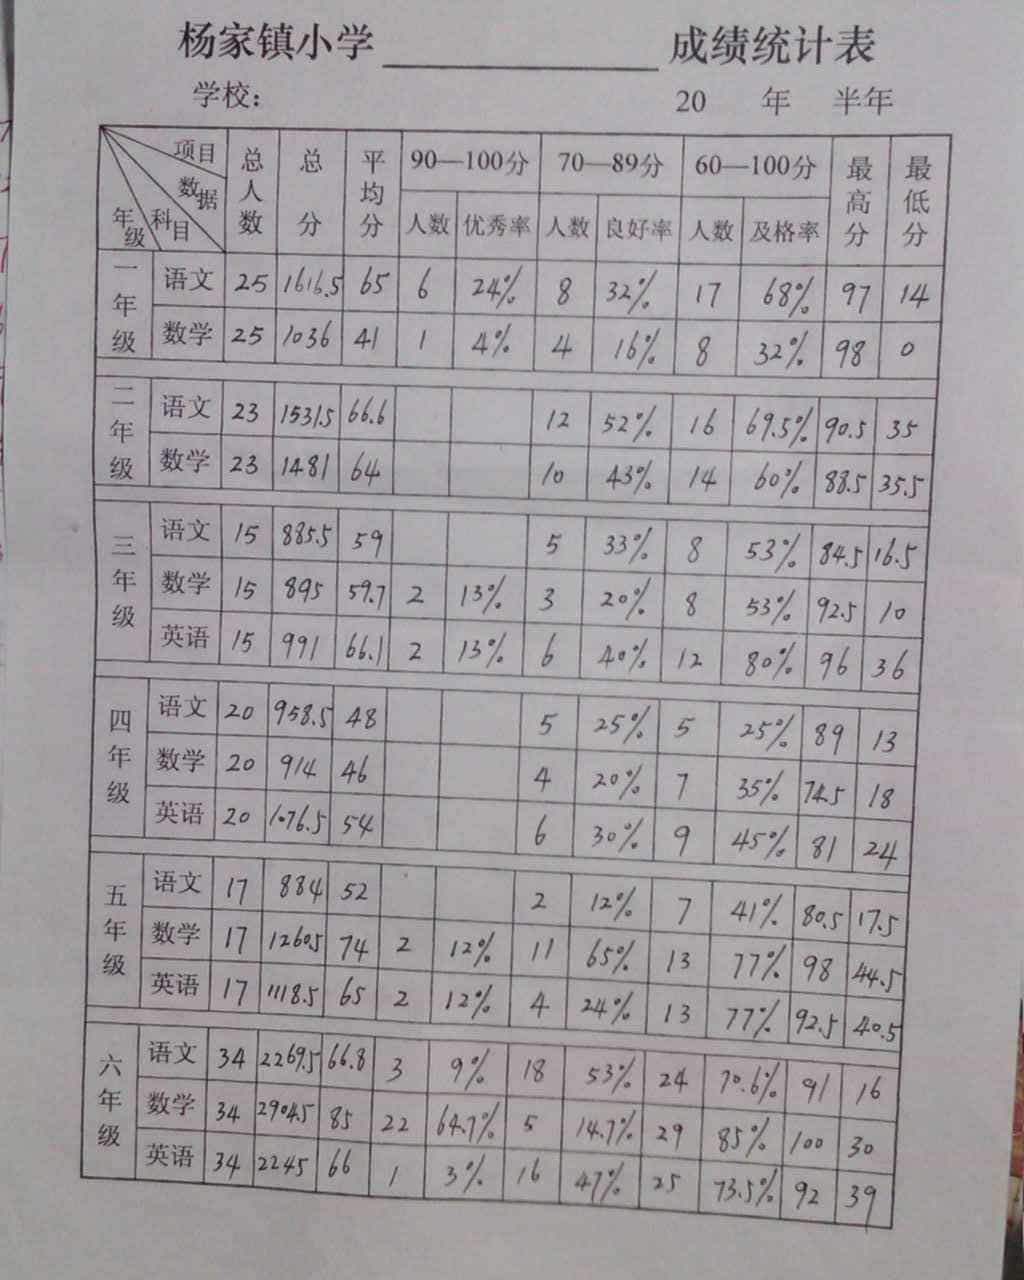 杨家镇小学 成绩统计表
学校: 20 年 半年
项目 数据 科目 年级 总人数 总分 平均分 90—100分 70—89分 60—100分 最高分 最低分
人数 优秀率 人数 良好率 人数 及格率
一年级 语文 25 1616.5 65 6 24% 8 32% 17 68% 97 14
数学 25 1036 41 1 4% 4 16% 8 32% 98 0
二年级 语文 23 1531.5 66.6 12 52% 16 69.5% 90.5 35
数学 23 1481 64 10 43% 14 60% 88.5 35.5
三年级 语文 15 885.5 59 5 33% 8 53% 84.5 16.5
数学 15 895 59.7 2 13% 3 20% 8 53% 92.5 10
英语 15 991 66.1 2 13% 6 40% 12 80% 96 36
四年级 语文 20 958.5 48 5 25% 5 25% 89 13
数学 20 914 46 4 20% 7 35% 74.5 18
英语 20 1076.5 54 6 30% 9 45% 81 24
五年级 语文 17 884 52 2 12% 7 41% 80.5 17.5
数学 17 1260.5 74 2 12% 11 65% 13 77% 98 44.5
英语 17 1118.5 65 2 12% 4 24% 13 77% 92.5 40.5
六年级 语文 34 2269.5 66.8 3 9% 18 53% 24 70.6% 91 16
数学 34 2904.5 85 22 64.7% 5 14.7% 29 85% 100 30
英语 34 2245 66 1 3% 16 47% 25 73.5% 92 39